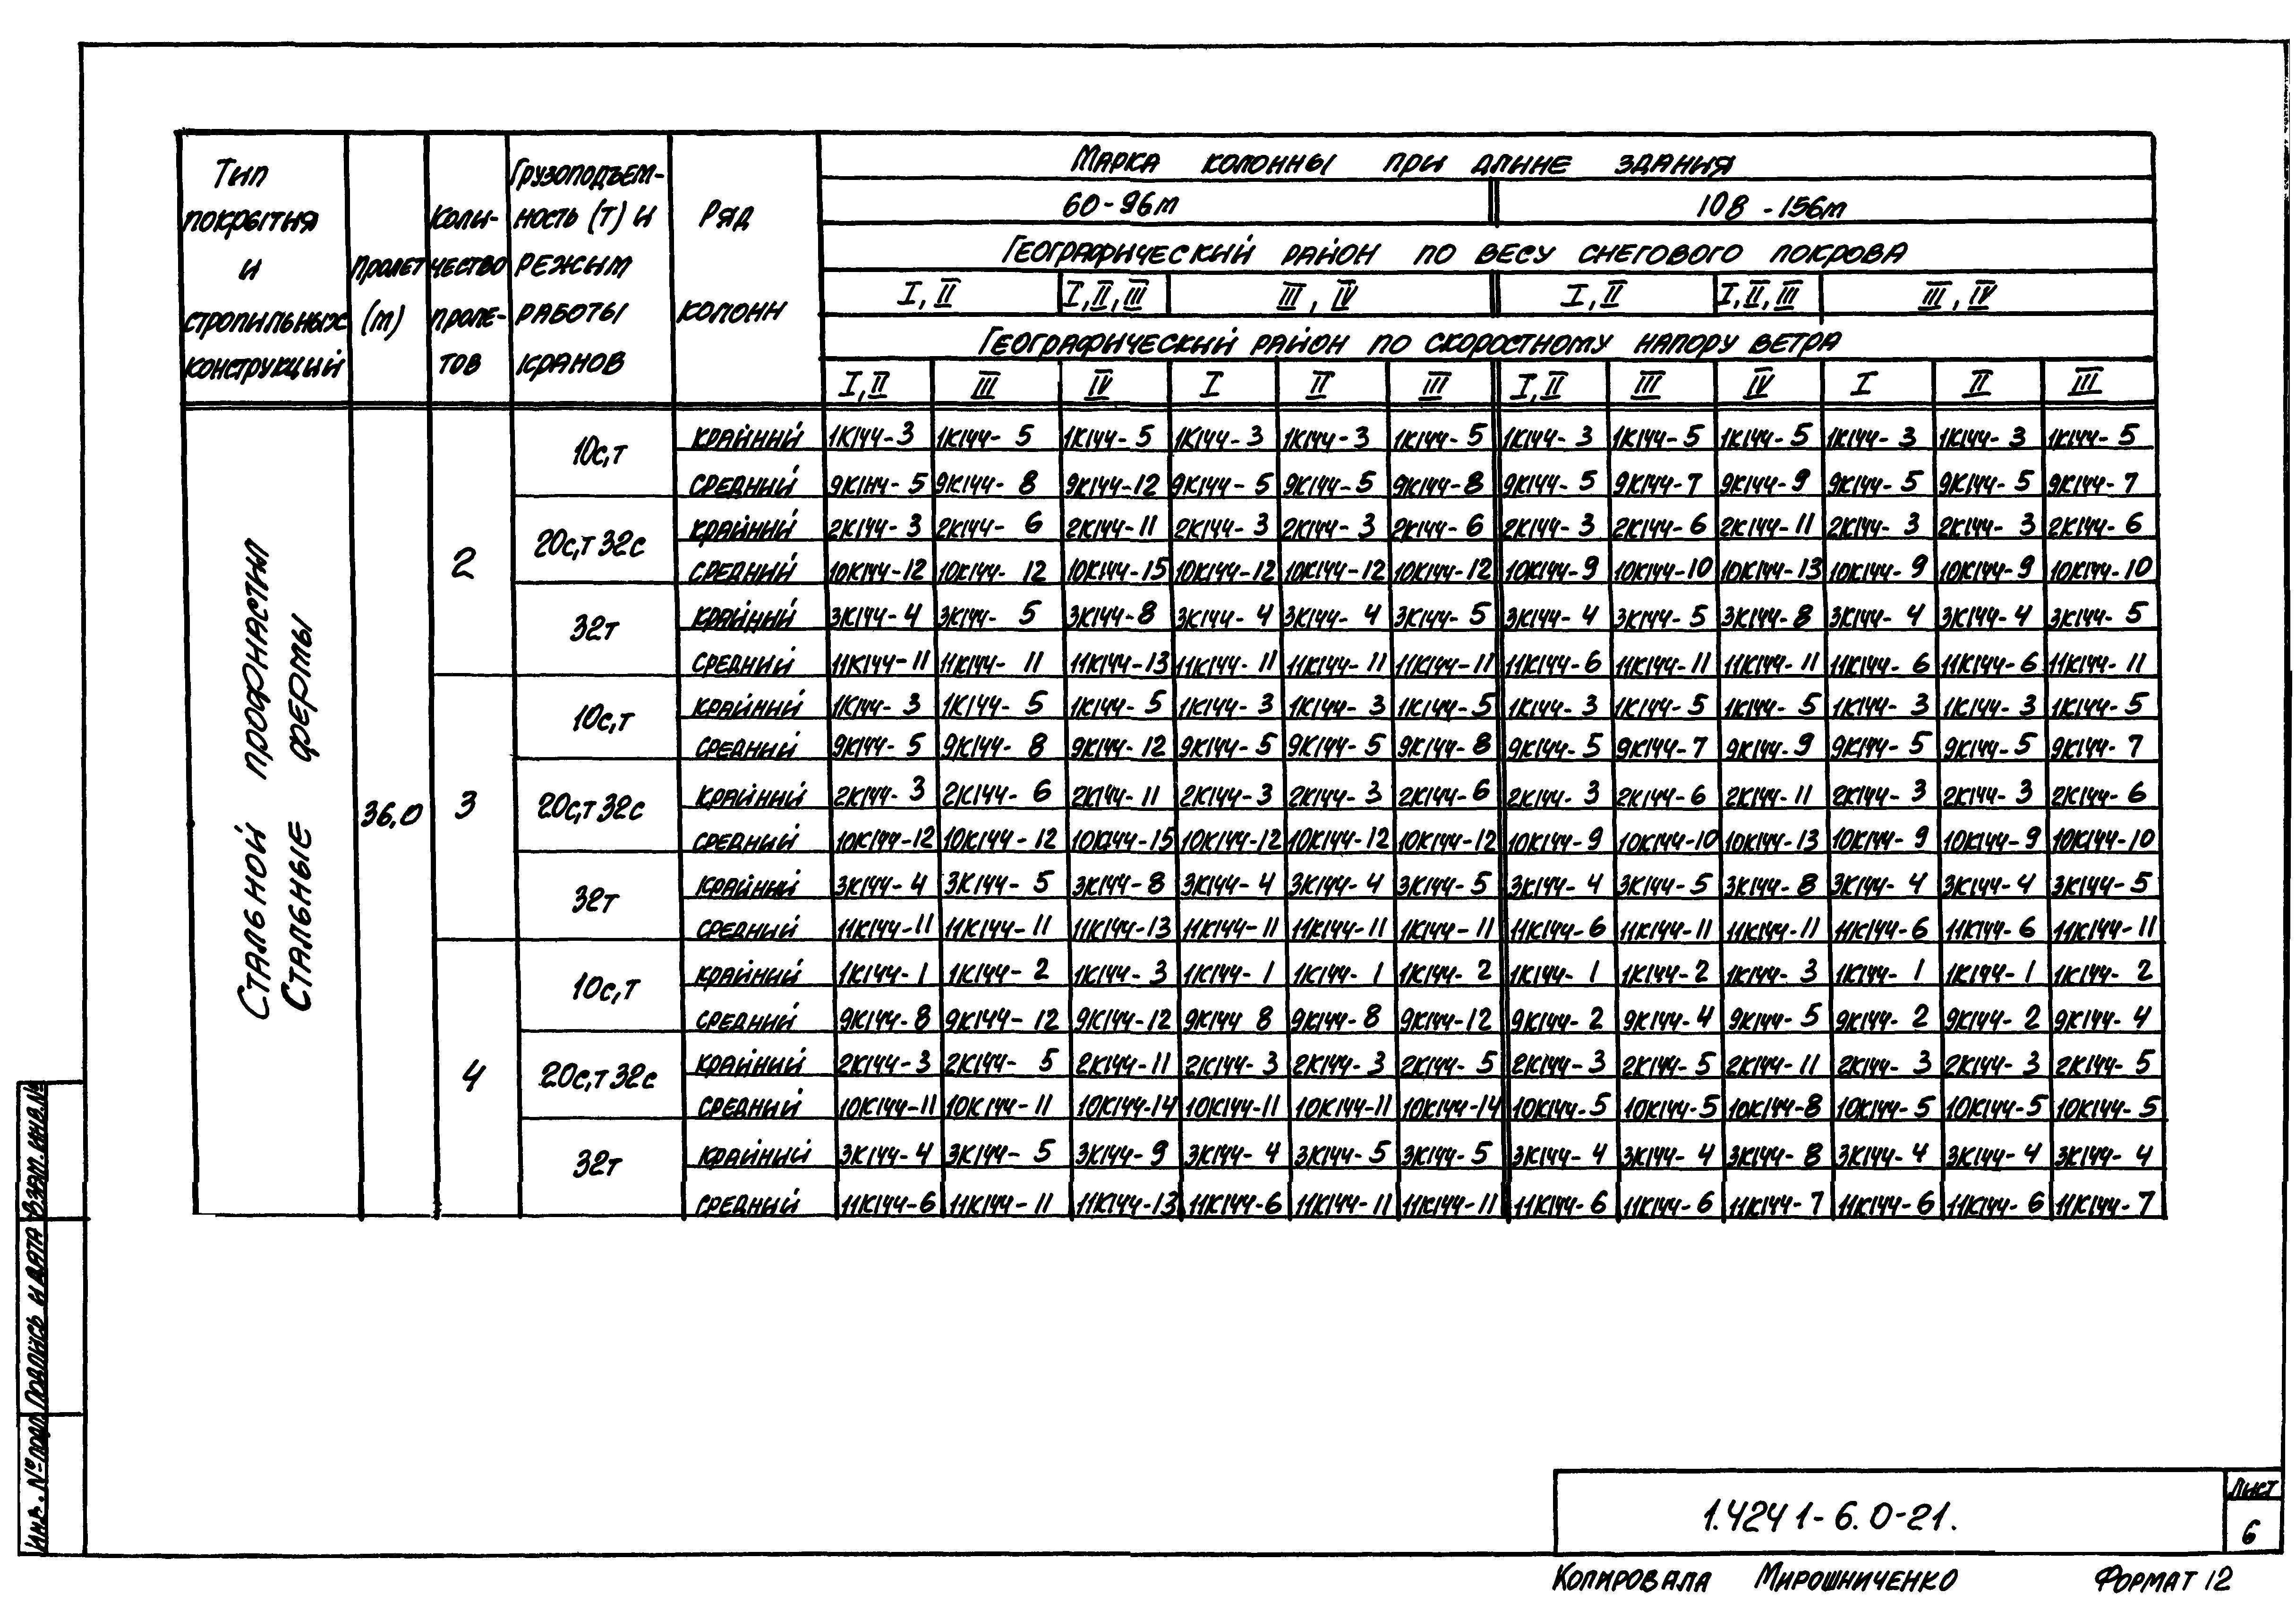 Тип покрытия и стропильных конструкций
Пролет (м)
Количество пролетов
Грузоподъемность (т) и режим работы кранов
Ряд колонн
Марка колонны при длине здания
60-96м 108-156м
Географический район по весу снегового покрова
I, II I, II, III III, IV I, II I, II, III III, IV
Географический район по скоростному напору ветра
I, II III IV I II III I, II III IV I II III
Стальной профнастил
Стальные фермы
36,0
2
10с,т
крайний 1К144-3 1К144-5 1К144-5 1К144-3 1К144-3 1К144-5 1К144-3 1К144-5 1К144-5 1К144-3 1К144-3 1К144-5
средний 9К144-5 9К144-8 9К144-12 9К144-5 9К144-5 9К144-8 9К144-5 9К144-7 9К144-9 9К144-5 9К144-5 9К144-7
20с,т 32с
крайний 2К144-3 2К144-6 2К144-11 2К144-3 2К144-3 2К144-6 2К144-3 2К144-6 2К144-11 2К144-3 2К144-3 2К144-6
средний 10К144-12 10К144-12 10К144-15 10К144-12 10К144-12 10К144-12 10К144-9 10К144-10 10К144-13 10К144-9 10К144-9 10К144-10
32т
крайный 3К144-4 3К144-5 3К144-8 3К144-4 3К144-4 3К144-5 3К144-4 3К144-5 3К144-8 3К144-4 3К144-4 3К144-5
средний 11К144-11 11К144-11 11К144-13 11К144-11 11К144-11 11К144-11 11К144-6 11К144-11 11К144-11 11К144-6 11К144-6 11К144-11
3
10с,т
крайний 1К144-3 1К144-5 1К144-5 1К144-3 1К144-3 1К144-5 1К144-3 1К144-5 1К144-5 1К144-3 1К144-3 1К144-5
средний 9К144-5 9К144-8 9К144-12 9К144-5 9К144-5 9К144-8 9К144-5 9К144-7 9К144-9 9К144-5 9К144-5 9К144-7
20с,т 32с
крайний 2К144-3 2К144-6 2К144-11 2К144-3 2К144-3 2К144-6 2К144-3 2К144-6 2К144-11 2К144-3 2К144-3 2К144-6
средний 10К144-12 10К144-12 10К144-15 10К144-12 10К144-12 10К144-12 10К144-9 10К144-10 10К144-13 10К144-9 10К144-9 10К144-10
32т
крайный 3К144-4 3К144-5 3К144-8 3К144-4 3К144-4 3К144-5 3К144-4 3К144-5 3К144-8 3К144-4 3К144-4 3К144-5
средний 11К144-11 11К144-11 11К144-13 11К144-11 11К144-11 1К144-11 11К144-6 11К144-11 11К144-11 11К144-6 11К144-6 11К144-11
4
10с,т
крайний 1К144-1 1К144-2 1К144-3 1К144-1 1К144-1 1К144-2 1К144-1 1К144-2 1К144-3 1К144-1 1К144-1 1К144-2
средний 9К144-8 9К144-12 9К144-12 9К144 8 9К144-8 9К144-12 9К144-2 9К144-4 9К144-5 9К144-2 9К144-2 9К144-4
20с,т 32с
крайний 2К144-3 2К144-5 2К144-11 2К144-3 2К144-3 2К144-5 2К144-3 2К144-5 2К144-11 2К144-3 2К144-3 2К144-5
средний 10К144-11 10К144-11 10К144-14 10К144-11 10К144-11 10К144-14 10К144-5 10К144-5 10К144-8 10К144-5 10К144-5 10К144-5
32т
крайний 3К144-4 3К144-5 3К144-9 3К144-4 3К144-5 3К144-5 3К144-4 3К144-4 3К144-8 3К144-4 3К144-4 3К144-4
средний 11К144-6 11К144-11 11К144-13 11К144-6 11К144-11 11К144-11 11К144-6 11К144-6 11К144-7 11К144-6 11К144-6 11К144-7
Инв. № подл. Подпись и дата Взам. инв. №
1.424 1-6. 0-21.
Лист
6
Копировала Мирошниченко Формат 12